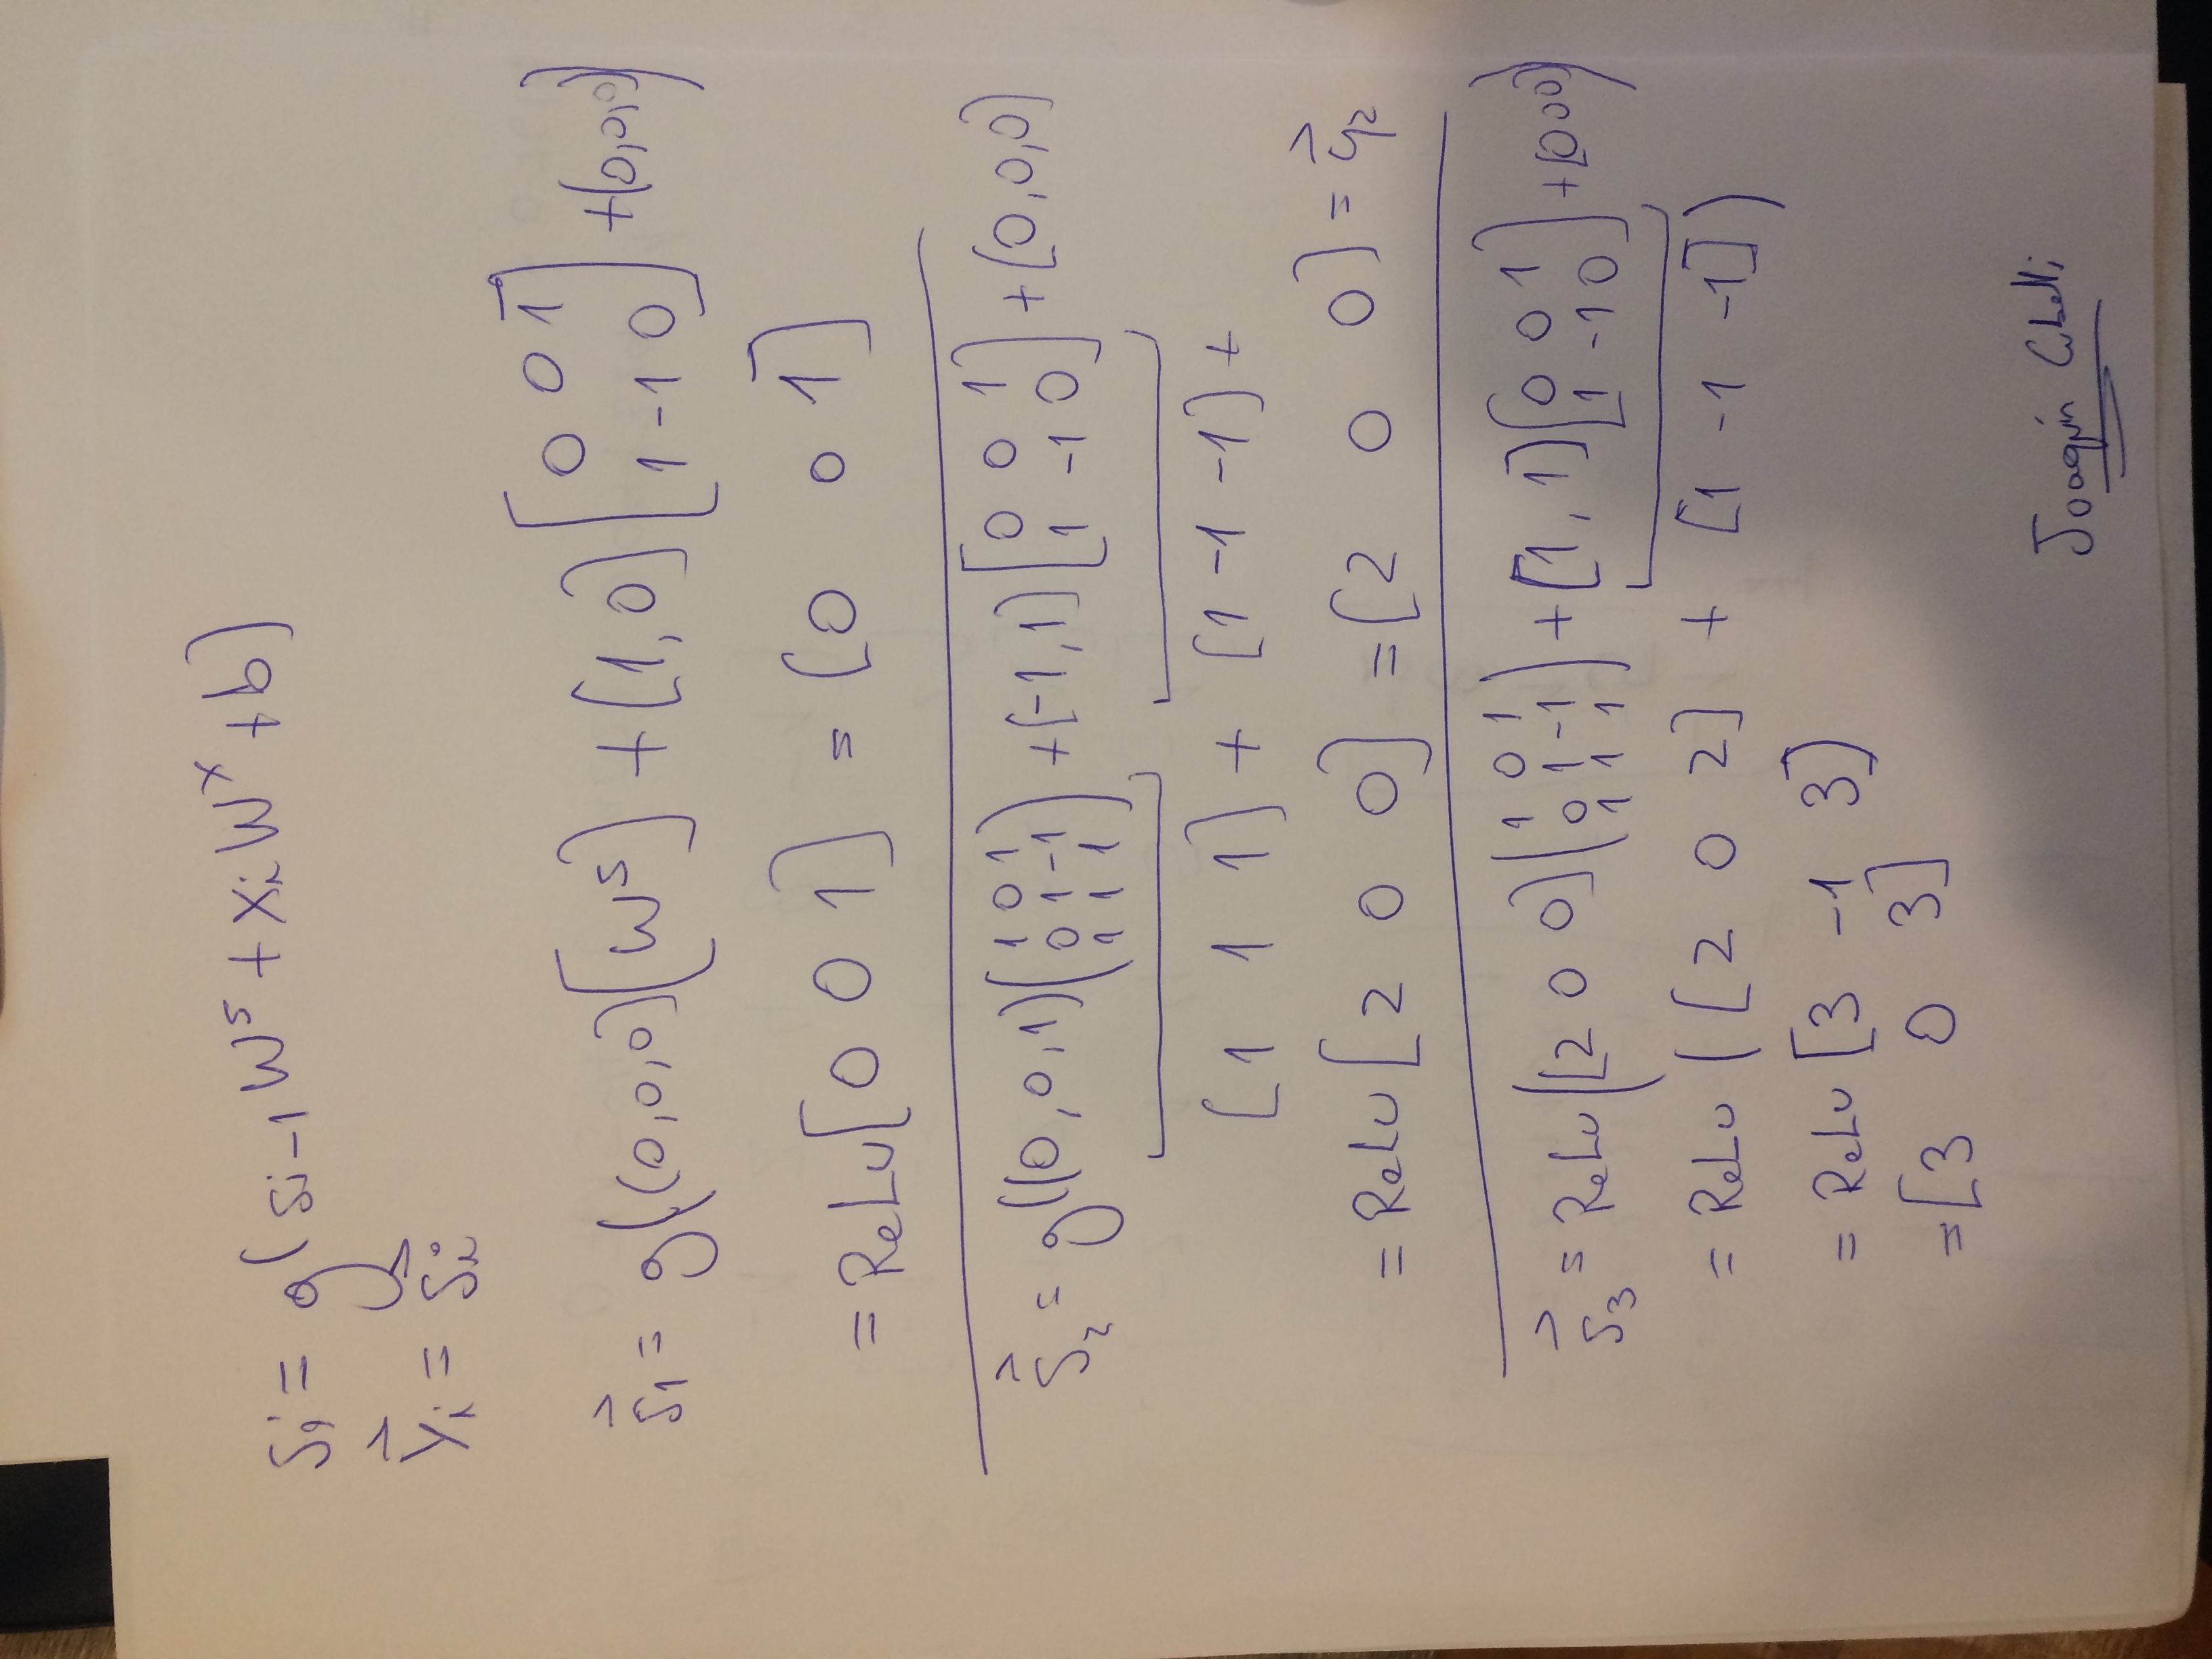 si = g(si-1 Wˢ + xi Wˣ + b)
yi = si
s1 = g((0,0,0)[Wˢ] + [1,0][0 0 1; 1 -1 0] + (0,0,0))
= ReLu[0 0 1] = [0 0 1]
s2 = g((0,0,1)(1 0 1; 0 1 -1; 1 1 1) + [-1,1][0 0 1; 1 -1 0] + [0,0,0]
[1 1 1] + [1 -1 -1] +
= ReLu[2 0 0] = [2 0 0] = y2
s3 = ReLu([2 0 0](1 0 1; 0 1 -1; 1 1 1) + [1,1][0 0 1; 1 -1 0] + [0 0 0])
= ReLu([2 0 2] + [1 -1 -1])
= ReLu[3 -1 3]
= [3 0 3]
Joaquín Cubelli